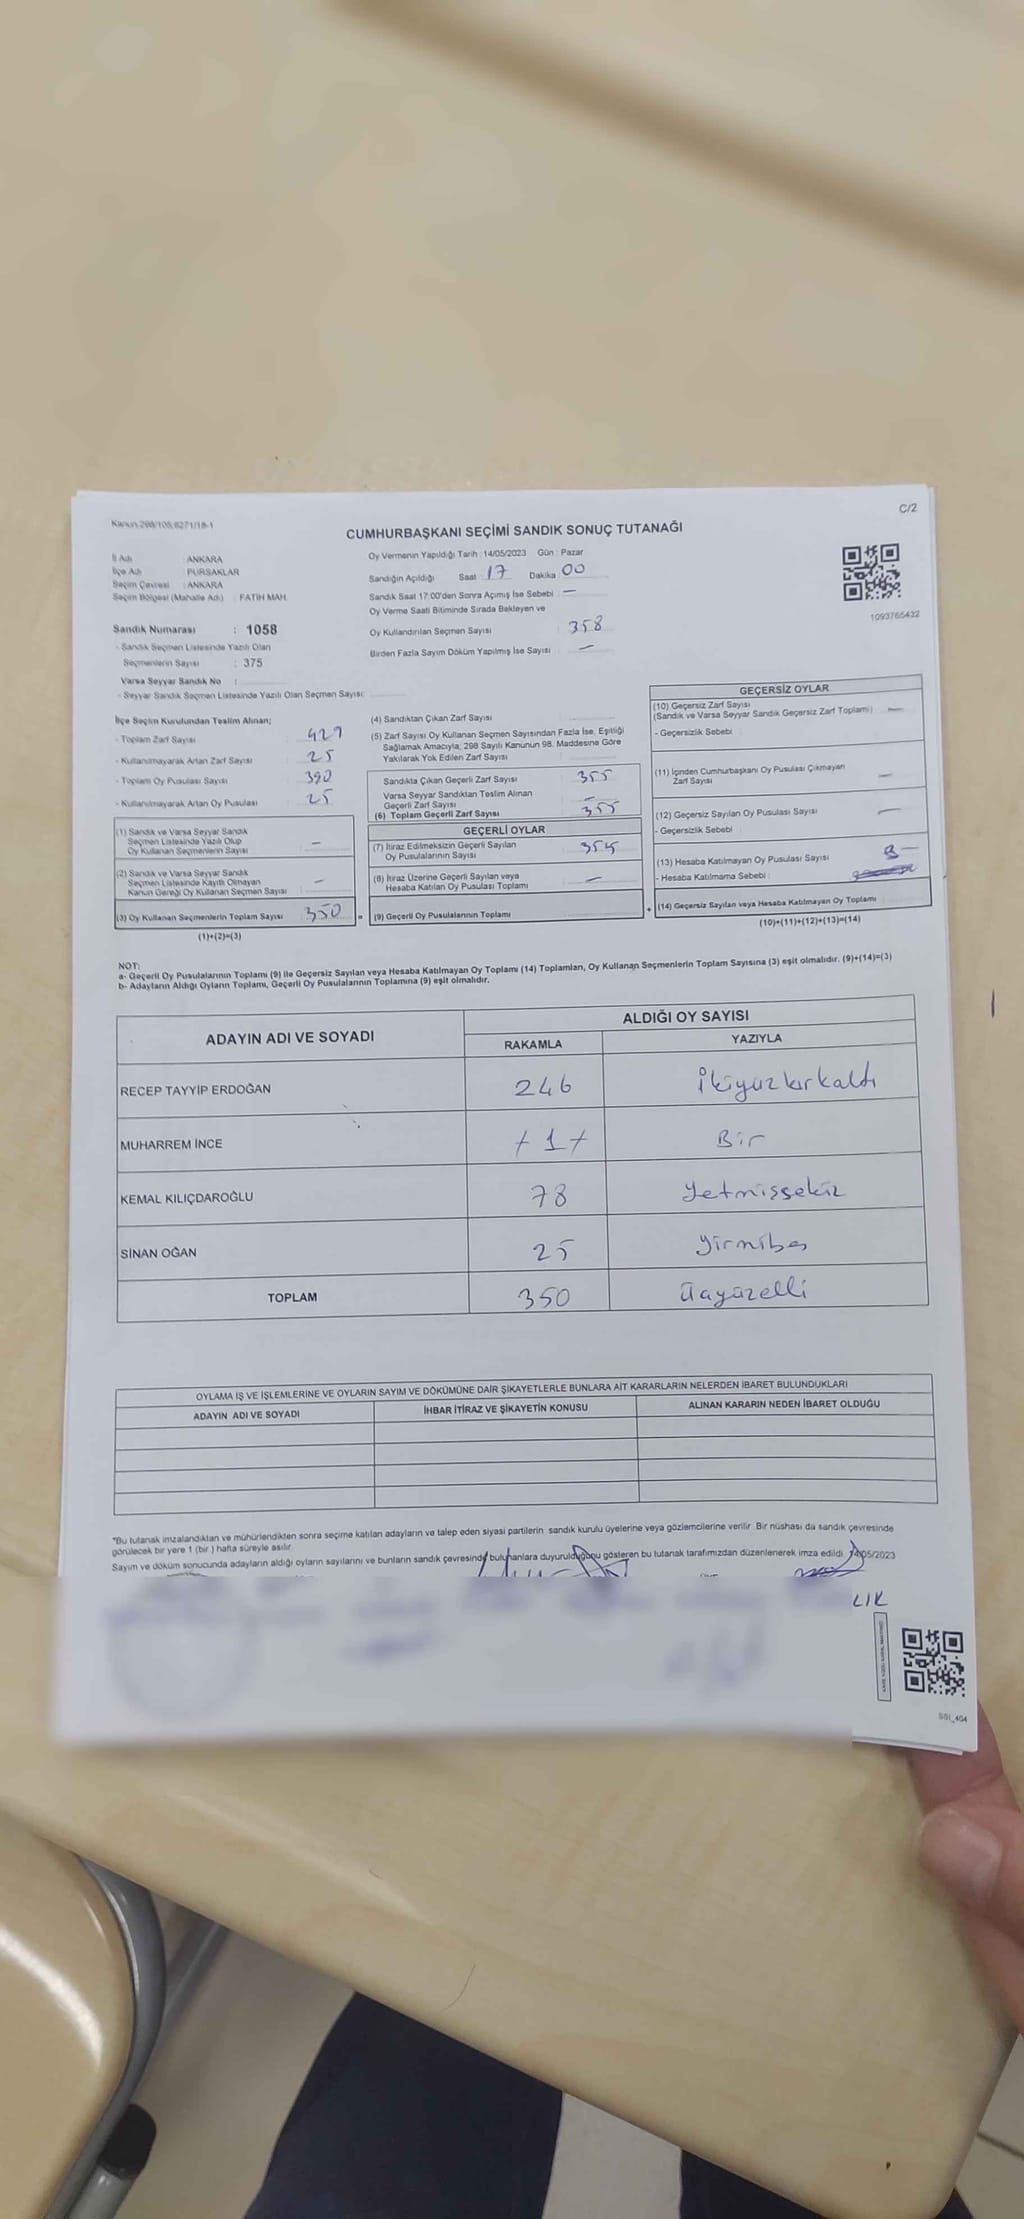 Kanun:298/105;6271/18-1
C/2
CUMHURBAŞKANI SEÇİMİ SANDIK SONUÇ TUTANAĞI
İl Adı : ANKARA
İlçe Adı : PURSAKLAR
Seçim Çevresi : ANKARA
Seçim Bölgesi (Mahalle Adı) : FATİH MAH.
Sandık Numarası : 1058
- Sandık Seçmen Listesinde Yazılı Olan
Seçmenlerin Sayısı : 375
Varsa Seyyar Sandık No :
- Seyyar Sandık Seçmen Listesinde Yazılı Olan Seçmen Sayısı:
Oy Vermenin Yapıldığı Tarih : 14/05/2023 Gün : Pazar
Sandığın Açıldığı Saat : 17 Dakika : 00
Sandık Saat 17:00'den Sonra Açımış İse Sebebi : —
Oy Verme Saati Bitiminde Sırada Bekleyen ve
Oy Kullandırılan Seçmen Sayısı : 358
Birden Fazla Sayım Döküm Yapılmış İse Sayısı : —
1093765432
İlçe Seçim Kurulundan Teslim Alınan;
- Toplam Zarf Sayısı : 429
- Kullanılmayarak Artan Zarf Sayısı : 25
- Toplam Oy Pusulası Sayısı : 390
- Kullanılmayarak Artan Oy Pusulası : 25
(1) Sandık ve Varsa Seyyar Sandık
Seçmen Listesinde Yazılı Olup
Oy Kullanan Seçmenlerin Sayısı : —
(2) Sandık ve Varsa Seyyar Sandık
Seçmen Listesinde Kayıtlı Olmayan
Kanun Gereği Oy Kullanan Seçmen Sayısı : —
(3) Oy Kullanan Seçmenlerin Toplam Sayısı : 350 =
(1)+(2)=(3)
(4) Sandıktan Çıkan Zarf Sayısı :
(5) Zarf Sayısı Oy Kullanan Seçmen Sayısından Fazla İse, Eşitliği
Sağlamak Amacıyla; 298 Sayılı Kanunun 98. Maddesine Göre
Yakılarak Yok Edilen Zarf Sayısı :
Sandıkta Çıkan Geçerli Zarf Sayısı : 355
Varsa Seyyar Sandıktan Teslim Alınan
Geçerli Zarf Sayısı : —
(6) Toplam Geçerli Zarf Sayısı : 355
GEÇERLİ OYLAR
(7) İtiraz Edilmeksizin Geçerli Sayılan
Oy Pusulalarının Sayısı :
(8) İtiraz Üzerine Geçerli Sayılan veya
Hesaba Katılan Oy Pusulası Toplamı : —
(9) Geçerli Oy Pusulalarının Toplamı : +
GEÇERSİZ OYLAR
(10) Geçersiz Zarf Sayısı
(Sandık ve Varsa Seyyar Sandık Geçersiz Zarf Toplamı) : —
- Geçersizlik Sebebi :
(11) İçinden Cumhurbaşkanı Oy Pusulası Çıkmayan
Zarf Sayısı : —
(12) Geçersiz Sayılan Oy Pusulası Sayısı : —
- Geçersizlik Sebebi :
(13) Hesaba Katılmayan Oy Pusulası Sayısı :
- Hesaba Katılmama Sebebi :
(14) Geçersiz Sayılan veya Hesaba Katılmayan Oy Toplamı
(10)+(11)+(12)+(13)=(14)
NOT:
a- Geçerli Oy Pusulalarının Toplamı (9) ile Geçersiz Sayılan veya Hesaba Katılmayan Oy Toplamı (14) Toplamları, Oy Kullanan Seçmenlerin Toplam Sayısına (3) eşit olmalıdır. (9)+(14)=(3)
b- Adayların Aldığı Oyların Toplamı, Geçerli Oy Pusulalarının Toplamına (9) eşit olmalıdır.
ADAYIN ADI VE SOYADI ALDIĞI OY SAYISI
RAKAMLA YAZIYLA
RECEP TAYYİP ERDOĞAN 246 İkiyüzkırkaltı
MUHARREM İNCE + 1 + Bir
KEMAL KILIÇDAROĞLU 78 Yetmişsekiz
SİNAN OĞAN 25 Yirmibeş
TOPLAM 350 Üçyüzelli
OYLAMA İŞ VE İŞLEMLERİNE VE OYLARIN SAYIM VE DÖKÜMÜNE DAİR ŞİKAYETLERLE BUNLARA AİT KARARLARIN NELERDEN İBARET BULUNDUKLARI
ADAYIN ADI VE SOYADI İHBAR İTİRAZ VE ŞİKAYETİN KONUSU ALINAN KARARIN NEDEN İBARET OLDUĞU
*Bu tutanak imzalandıktan ve mühürlendikten sonra seçime katılan adayların ve talep eden siyasi partilerin sandık kurulu üyelerine veya gözlemcilerine verilir. Bir nüshası da sandık çevresinde
görülecek bir yere 1 (bir) hafta süreyle asılır.
Sayım ve döküm sonucunda adayların aldığı oyların sayılarını ve bunların sandık çevresinde bulunanlara duyurulduğunu gösteren bu tutanak tarafımızdan düzenlenerek imza edildi. 14/05/2023
LIK
SSI_404